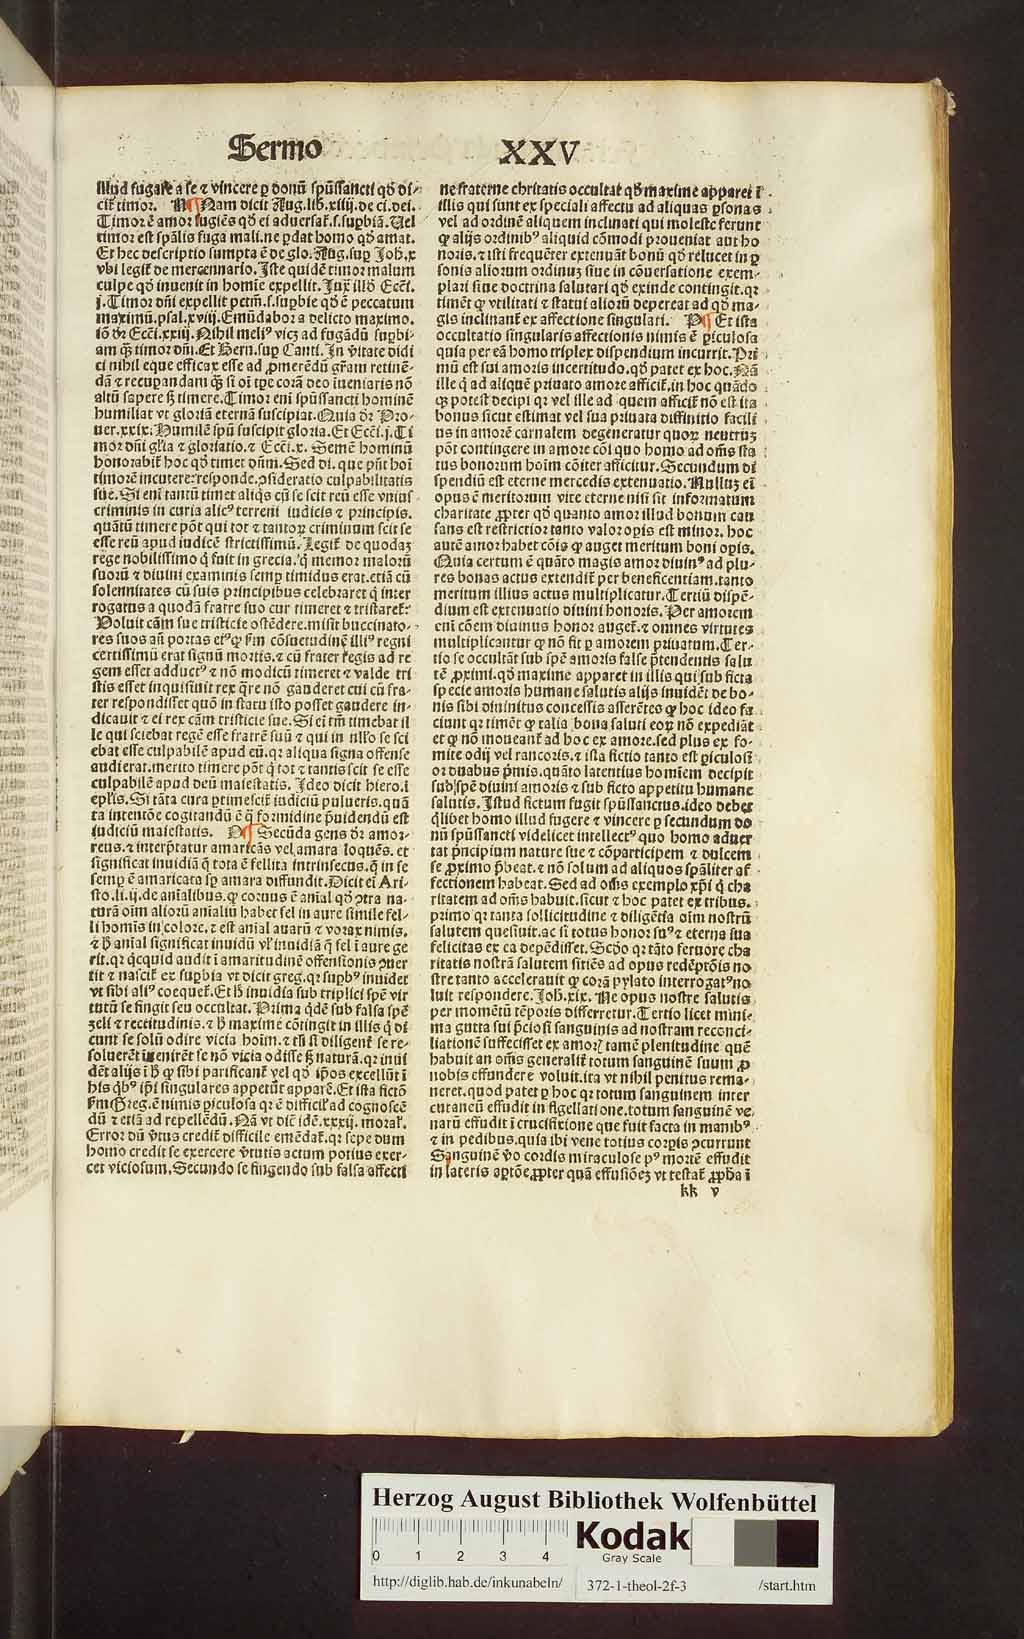 Sermo XXV
illud fugare a se ⁊ vincere ꝑ donū spūssancti qḋ di-
cit᷑ timor. Nam dicit Aug. lib. xiiij. de ci. dei.
Timor ē amor fugiēs qḋ ei aduersat᷑. s. suꝑbiā. Uel
timor est spālis fuga mali. ne ꝑdat homo qḋ amat.
Et hec descriptio sumpta ē de glo. Aug. suꝑ Joh. x
vbi legit᷑ de mercennario. Iste quidē timor malum
culpe qḋ inuenit in homīe expellit. Jux̄ illḋ Ecci.
j. Timor dn̄i expellit petm̄. s. suꝑbie qḋ ē peccatum
maximū. psal. xviij. Emūdabor a delicto maximo.
iō dr̄ Ecci. xxiij. Nihil meliꝰ vicꝫ ad fugādū suꝑbi-
am ꝙ̄ timor dn̄i. Et Bern. suꝑ Canti. In v̄itate didi
ci nihil eque efficax esse ad ꝓmerēdū gr̄am retinē-
dā ⁊ recuꝑandam ꝙ̄ si oī tꝑe corā deo īueniaris nō
altū sapere sꝫ timere. Timor eni spūssancti hominē
humiliat vt gloriā eternā suscipiat. Quia dr̄ Pro-
uer. xxix. Humilē spū suscipit gloria. Et Ecci. j. Ti
mor dn̄i gl̄ia ⁊ gloriatio. ⁊ Ecci. x. Semē hominū
honorabit᷑ hoc qḋ timet dn̄m. Sed di. que pn̄t hoī
timorē incutere: responde. ꝯsideratio culpabilitatis
sue. Si enī tantū timet aliq̄s cū se scit reū esse vnius
criminis in curia alicꝰ terreni iudicis ⁊ principis.
quātū timere pōt qui tot ⁊ tantoꝝ criminum scit se
esse reū apud iudicē strictissimū. Legit᷑ de quodaꝫ
rēge nobilissimo q̇ fuit in grecia. q̇ memor malorū
suorū ⁊ diuini examinis semꝑ timidus erat. etiā cū
solennitates cū suis principibus celebraret q̇ inter
rogatus a quodā fratre suo cur timeret ⁊ tristaret᷑:
Voluit cām sue tristicie ostēdere. misit buccinato-
res suos an̄ portas eiꝰ ꝙ ẜm cōsuetudinē illiꝰ regni
certissimū erat signū mortis. ⁊ cū frater regis ad re
gem esset adductꝰ ⁊ nō modicū timeret ⁊ valde tri
stis esset inquisiuit rex q̄re nō gauderet cui cū fra-
ter respondisset quō in statu isto posset gaudere in-
dicauit ⁊ ei rex cām tristicie sue. Si ei tm̄ timebat il
le qui sciebat regē esse fratrē suū ⁊ qui in nllo se sci
ebat esse culpabilē apud eū. qꝛ aliqua signa offense
audierat. merito timere pōt q̇ tot ⁊ tantis scit se esse
culpabilē apud deū maiestatis. Ideo dicit hiero. ī
epl̄is. Si tāta cura ꝑtimescit᷑ iudiciū pulueris. quā
ta intentōe cogitandū ē q̄ formidine p̄uidendū est
iudiciū maiestatis. Secūda gens dr̄ amor-
reus. ⁊ interp̄tatur amaricās vel amara loquēs. et
significat inuidiā q̄ tota ē fellita intrinsecus. q̄ in se
semꝑ ē amaricata sꝑ amara diffundit. Dicit ei Ari-
sto. li. ij. de an̄ialibus. ꝙ coruus ē an̄ial qḋ ꝯtra na-
turā oīm aliorū an̄ialiū habet fel in aure simile fel-
li homīs in colore. ⁊ est an̄ial auarū ⁊ vorax nimis.
⁊ ꝧ an̄ial significat inuidū vl̓ inuidiā q̄ fel ī aure ge
rit. qꝛ q̇cquid audit ī amaritudinē offensionis ꝯuer
tit ⁊ nascit᷑ ex suꝑbia vt dicit greg. qꝛ suꝑbꝰ inuidet
vt sibi aliꝰ coequet᷑. Et ꝧ inuidia sub triplici spē vir
tutū se fingit seu occultat. Prima q̇dē sub falsa spē
zeli ⁊ rectitudinis. ⁊ ꝧ maxime cōtingit in illis q̇ di
cunt se solū odire vicia hoīm. ⁊ tn̄ si diligent᷑ se re-
soluerēt īuenirēt se nō vicia odisse sꝫ naturā. qꝛ inui
dēt alijs ī ꝧ ꝙ sibi parificant᷑ vel qḋ ip̄os excellūt ī
his q̇bꝰ ip̄i singulares appetūt apparē. Et ista fictō
ẜm Greg. ē nimis ꝑiculosa qꝛ ē difficil̓ ad cognoscē
dū ⁊ etiā ad repellēdū. Nā vt dic̄ idē. xxxij. moral᷑.
Error dū v̓tus credit᷑ difficile emēdat᷑. qꝛ sepe dum
homo credit se exercere v̓tutis actum potius exer-
cet viciosum. Secundo se fingendo sub falsa affecti
ne fraterne chritatis occultat qḋ maxime apparet ī
illis qui sunt ex speciali affectu ad aliquas ꝑsonas
vel ad ordinē aliquem inclinati qui moleste ferunt
ꝙ alijs ordinibꝰ aliquid cōmodi proueniat aut ho
noris. ⁊ isti frequēter extenuāt bonū qḋ relucet in ꝑ
sonis aliorum ordinuꝫ siue in cōuersatione exem-
plari siue doctrina salutari qḋ exinde contingit. qꝛ
timēt ꝙ vtilitati ⁊ statui aliorū depereat ad qḋ ma-
gis inclinant᷑ ex affectione singulari. Et ista
occultatio singularis affectionis nimis ē ꝑiculosa
quia per eā homo triplex dispendium incurrit. Pri
mū est sui amoris incertitudo. qḋ patet ex hoc. Nā
ille q̇ ad aliquē priuato amore afficit᷑. in hoc quādo
qꝫ potest decipi qꝛ vel ille ad quem afficit᷑ nō est ita
bonus sicut estimat vel sua priuata diffinitio facili
us in amorē carnalem degeneratur quoꝝ neutruꝫ
pōt contingere in amore cōi quo homo ad om̄s sta
tus bonorum hoīm cōiter afficitur. Secundum di
spendiū est eterne mercedis extenuatio. Nulluꝫ eī
opus ē meritorum vite eterne nisi sit informatum
charitate ꝓpter qḋ quanto amor illud bonum cau
sans est restrictior tanto valor oꝑis est minor. hoc
autē amor habet cōis ꝙ auget meritum boni oꝑis.
Quia certum ē quāto magis amor diuinꝰ ad plu-
res bonas actus extendit᷑ per beneficentiam. tanto
meritum illius actus multiplicatur. Tertiū dispē-
dium est extenuatio diuini honoris. Per amorem
enī cōem diuinus honor auget᷑. ⁊ omnes virtutes
multiplicantur ꝙ nō fit ꝑ amorem priuatum. Ter-
tio se occultāt sub spē amoris false p̄tendentis salu
tē ꝓximi. qḋ maxime apparet in illis qui sub ficta
specie amoris humane salutis alijs inuidēt de bo-
nis sibi diuinitus concessis asserētes ꝙ hoc ideo fa
ciunt qꝛ timēt ꝙ talia bona saluti eoꝝ nō expediāt
et ꝙ nō moueant᷑ ad hoc ex amore. sed plus ex fo-
mite odij vel rancoris. ⁊ ista fictio tanto est ꝑiculosi
or duabus p̄mis. quāto latentius homīem decipit
sub spē diuini amoris ⁊ sub ficto appetitu humane
salutis. Istud fictum fugit spūssanctus. ideo debet
q̇libet homo illud fugere ⁊ vincere ꝑ secundum do
nū spūssancti videlicet intellectꝰ quo homo aduer
tat p̄ncipium nature sue ⁊ cōparticipem ⁊ dulcem
se ꝓximo p̄beat. ⁊ nō solum ad aliquos spāliter af
fectionem habeat. Sed ad om̄s exemplo xp̄i q̇ cha
ritatem ad om̄s habuit. sicut ⁊ hoc patet ex tribus.
primo qꝛ tanta sollicitudine ⁊ diligētia oīm nostrū
salutem quesiuit. ac si totus honor suꝰ ⁊ eterna sua
felicitas ex ea depēdisset. Scḋo qꝛ tāto feruore cha
ritatis nostrā salutem sitiēs ad opus redēptōis no
stre tanto accelerauit ꝙ corā pylato interrogatꝰ no
luit respondere. Joh. xix. Ne opus nostre salutis
per momētū tēporis differretur. Tertio licet mini-
ma gutta sui p̄ciosi sanguinis ad nostram reconci-
liationē suffecisset ex amorꝫ tamē plenitudine quē
habuit an om̄s generalit᷑ totum sanguinē suum ꝓ
nobis effundere voluit. ita vt nihil penitus rema-
neret. quod patet ꝑ hoc qꝛ totum sanguinem inter
cutaneū effudit in flgellatione. totum sanguinē ve-
narū effudit ī crucifixione que fuit facta in manibꝰ
⁊ in pedibus. quia ibi vene totius corꝑis ꝯcurrunt
Sanguinē v̓o cordis miraculose pꝰ mortē effudit
in lateris aꝑtōe ꝓpter quā effusiōeꝫ vt testat᷑ ꝓpḣa ī
kk v
Herzog August Bibliothek Wolfenbüttel
0 1 2 3 4
Kodak
Gray Scale
http://diglib.hab.de/inkunabeln/ 372-1-theol-2f-3 /start.htm